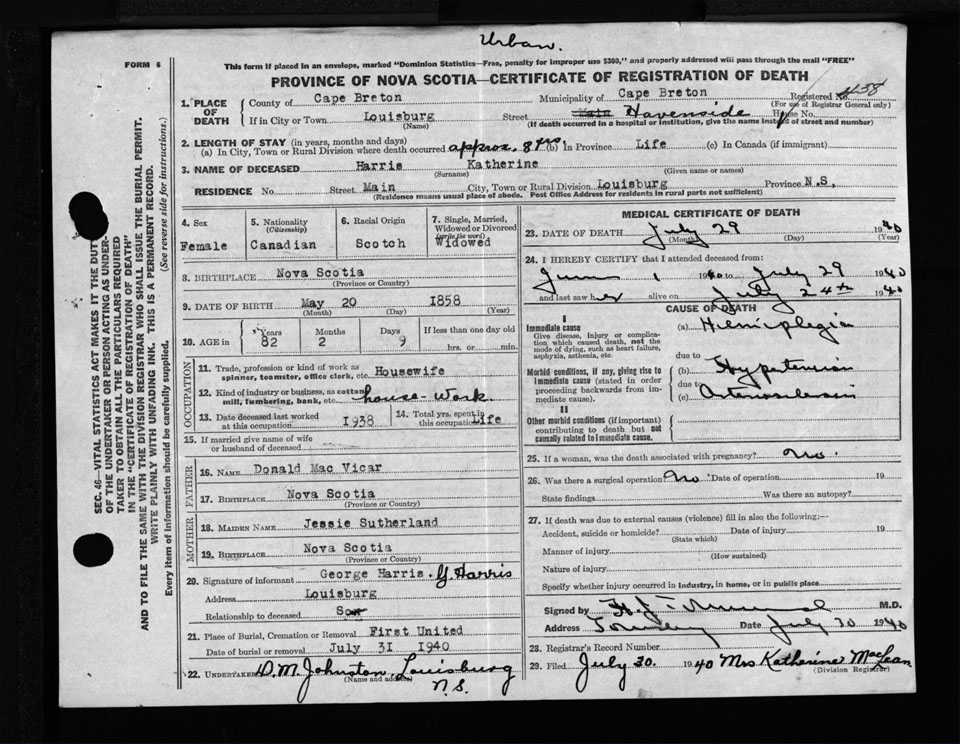 Urban.
FORM 6
This form if placed in an envelope, marked "Dominion Statistics—Free, penalty for improper use $300," and properly addressed will pass through the mail "FREE"
PROVINCE OF NOVA SCOTIA—CERTIFICATE OF REGISTRATION OF DEATH
Registered No.
(For use of Registrar General only)
1. PLACE OF DEATH
County of Cape Breton Municipality of Cape Breton
If in City or Town Louisburg Street Havenside House No.
(Name) (If death occurred in a hospital or institution, give the name instead of street and number)
2. LENGTH OF STAY (in years, months and days)
(a) In City, Town or Rural Division where death occurred approx. 8 yrs. (b) in Province Life (c) In Canada (if immigrant)
3. NAME OF DECEASED Harris Katherine
(Surname) (Given name or names)
RESIDENCE No. Street Main City, Town or Rural Division Louisburg Province N.S.
(Residence means usual place of abode. Post Office Address for residents in rural parts not sufficient)
4. Sex Female
5. Nationality (Citizenship) Canadian
6. Racial Origin Scotch
7. Single, Married, Widowed or Divorced (write the word) Widowed
8. BIRTHPLACE Nova Scotia
(Province or Country)
9. DATE OF BIRTH May 20 1858
(Month) (Day) (Year)
10. AGE in Years Months Days If less than one day old
82 2 9 hrs. or min.
OCCUPATION
11. Trade, profession or kind of work as spinner, teamster, office clerk, etc. Housewife
12. Kind of industry or business, as cotton mill, lumbering, bank, etc. house-Work.
13. Date deceased last worked at this occupation 1938
14. Total yrs. spent in this occupation Life
15. If married give name of wife or husband of deceased
FATHER
16. NAME Donald Mac Vicar
17. BIRTHPLACE Nova Scotia
(Province or Country)
MOTHER
18. MAIDEN NAME Jessie Sutherland
19. BIRTHPLACE Nova Scotia
(Province or Country)
20. Signature of informant George Harris. G. Harris
Address Louisburg
Relationship to deceased Son
21. Place of Burial, Cremation or Removal First United
Date of burial or removal July 31 1940
22. UNDERTAKER D. M. Johnston, Louisburg
(Name and address) N.S.
MEDICAL CERTIFICATE OF DEATH
23. DATE OF DEATH July 29 1940
(Month) (Day) (Year)
24. I HEREBY CERTIFY that I attended deceased from:
June 1 1940 to July 29 1940
and last saw her alive on July 24th 1940
CAUSE OF DEATH
I
Immediate cause
Give disease, injury or complication which caused death, not the mode of dying, such as heart failure, asphyxia, asthenia, etc.
(a) Hemiplegia
due to
Morbid conditions, if any, giving rise to immediate cause (stated in order proceeding backwards from immediate cause).
(b) Hypertension
due to
(c) Arteriosclerosis
II
Other morbid conditions (if important) contributing to death but not causally related to immediate cause.
25. If a woman, was the death associated with pregnancy? No.
26. Was there a surgical operation? No. Date of operation 19
State findings Was there an autopsy?
27. If death was due to external causes (violence) fill in also the following:—
Accident, suicide or homicide? Date of injury 19
(State which)
Manner of injury
(How sustained)
Nature of injury
Specify whether injury occurred in industry, in home, or in public place
Signed by M.D.
Address Date July 30 1940
28. Registrar's Record Number
29. Filed July 30. 1940 Mrs Katherine MacLean
(Division Registrar)
SEC. 46—VITAL STATISTICS ACT MAKES IT THE DUTY
OF THE UNDERTAKER OR PERSON ACTING AS UNDER-
TAKER TO OBTAIN ALL THE PARTICULARS REQUIRED
IN THE "CERTIFICATE OF REGISTRATION OF DEATH"
AND TO FILE THE SAME WITH THE DIVISION REGISTRAR WHO SHALL ISSUE THE BURIAL PERMIT.
WRITE PLAINLY WITH UNFADING INK. THIS IS A PERMANENT RECORD.
Every item of information should be carefully supplied. (See reverse side for instructions.)